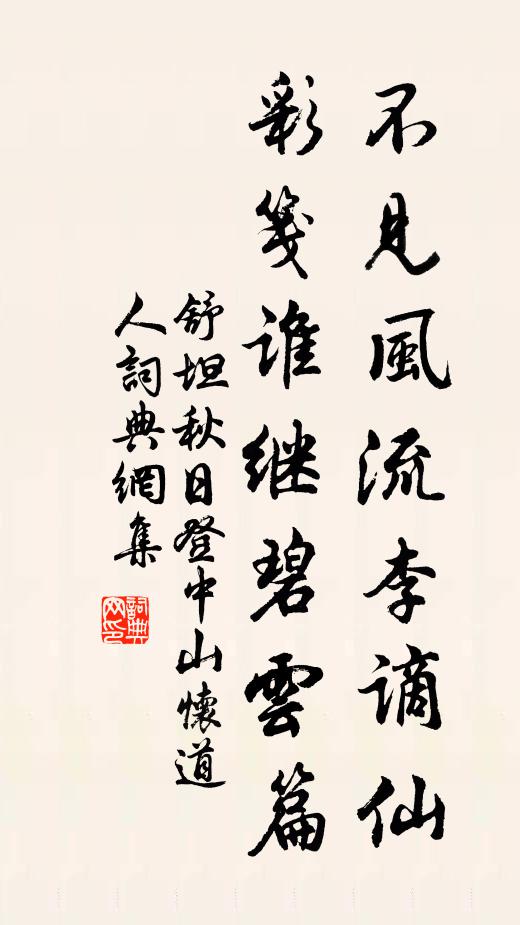 不見風流李謫仙
彩箋誰継碧雲篇
舒坦秋日登中山懷道
人詞典網集
詞典网印